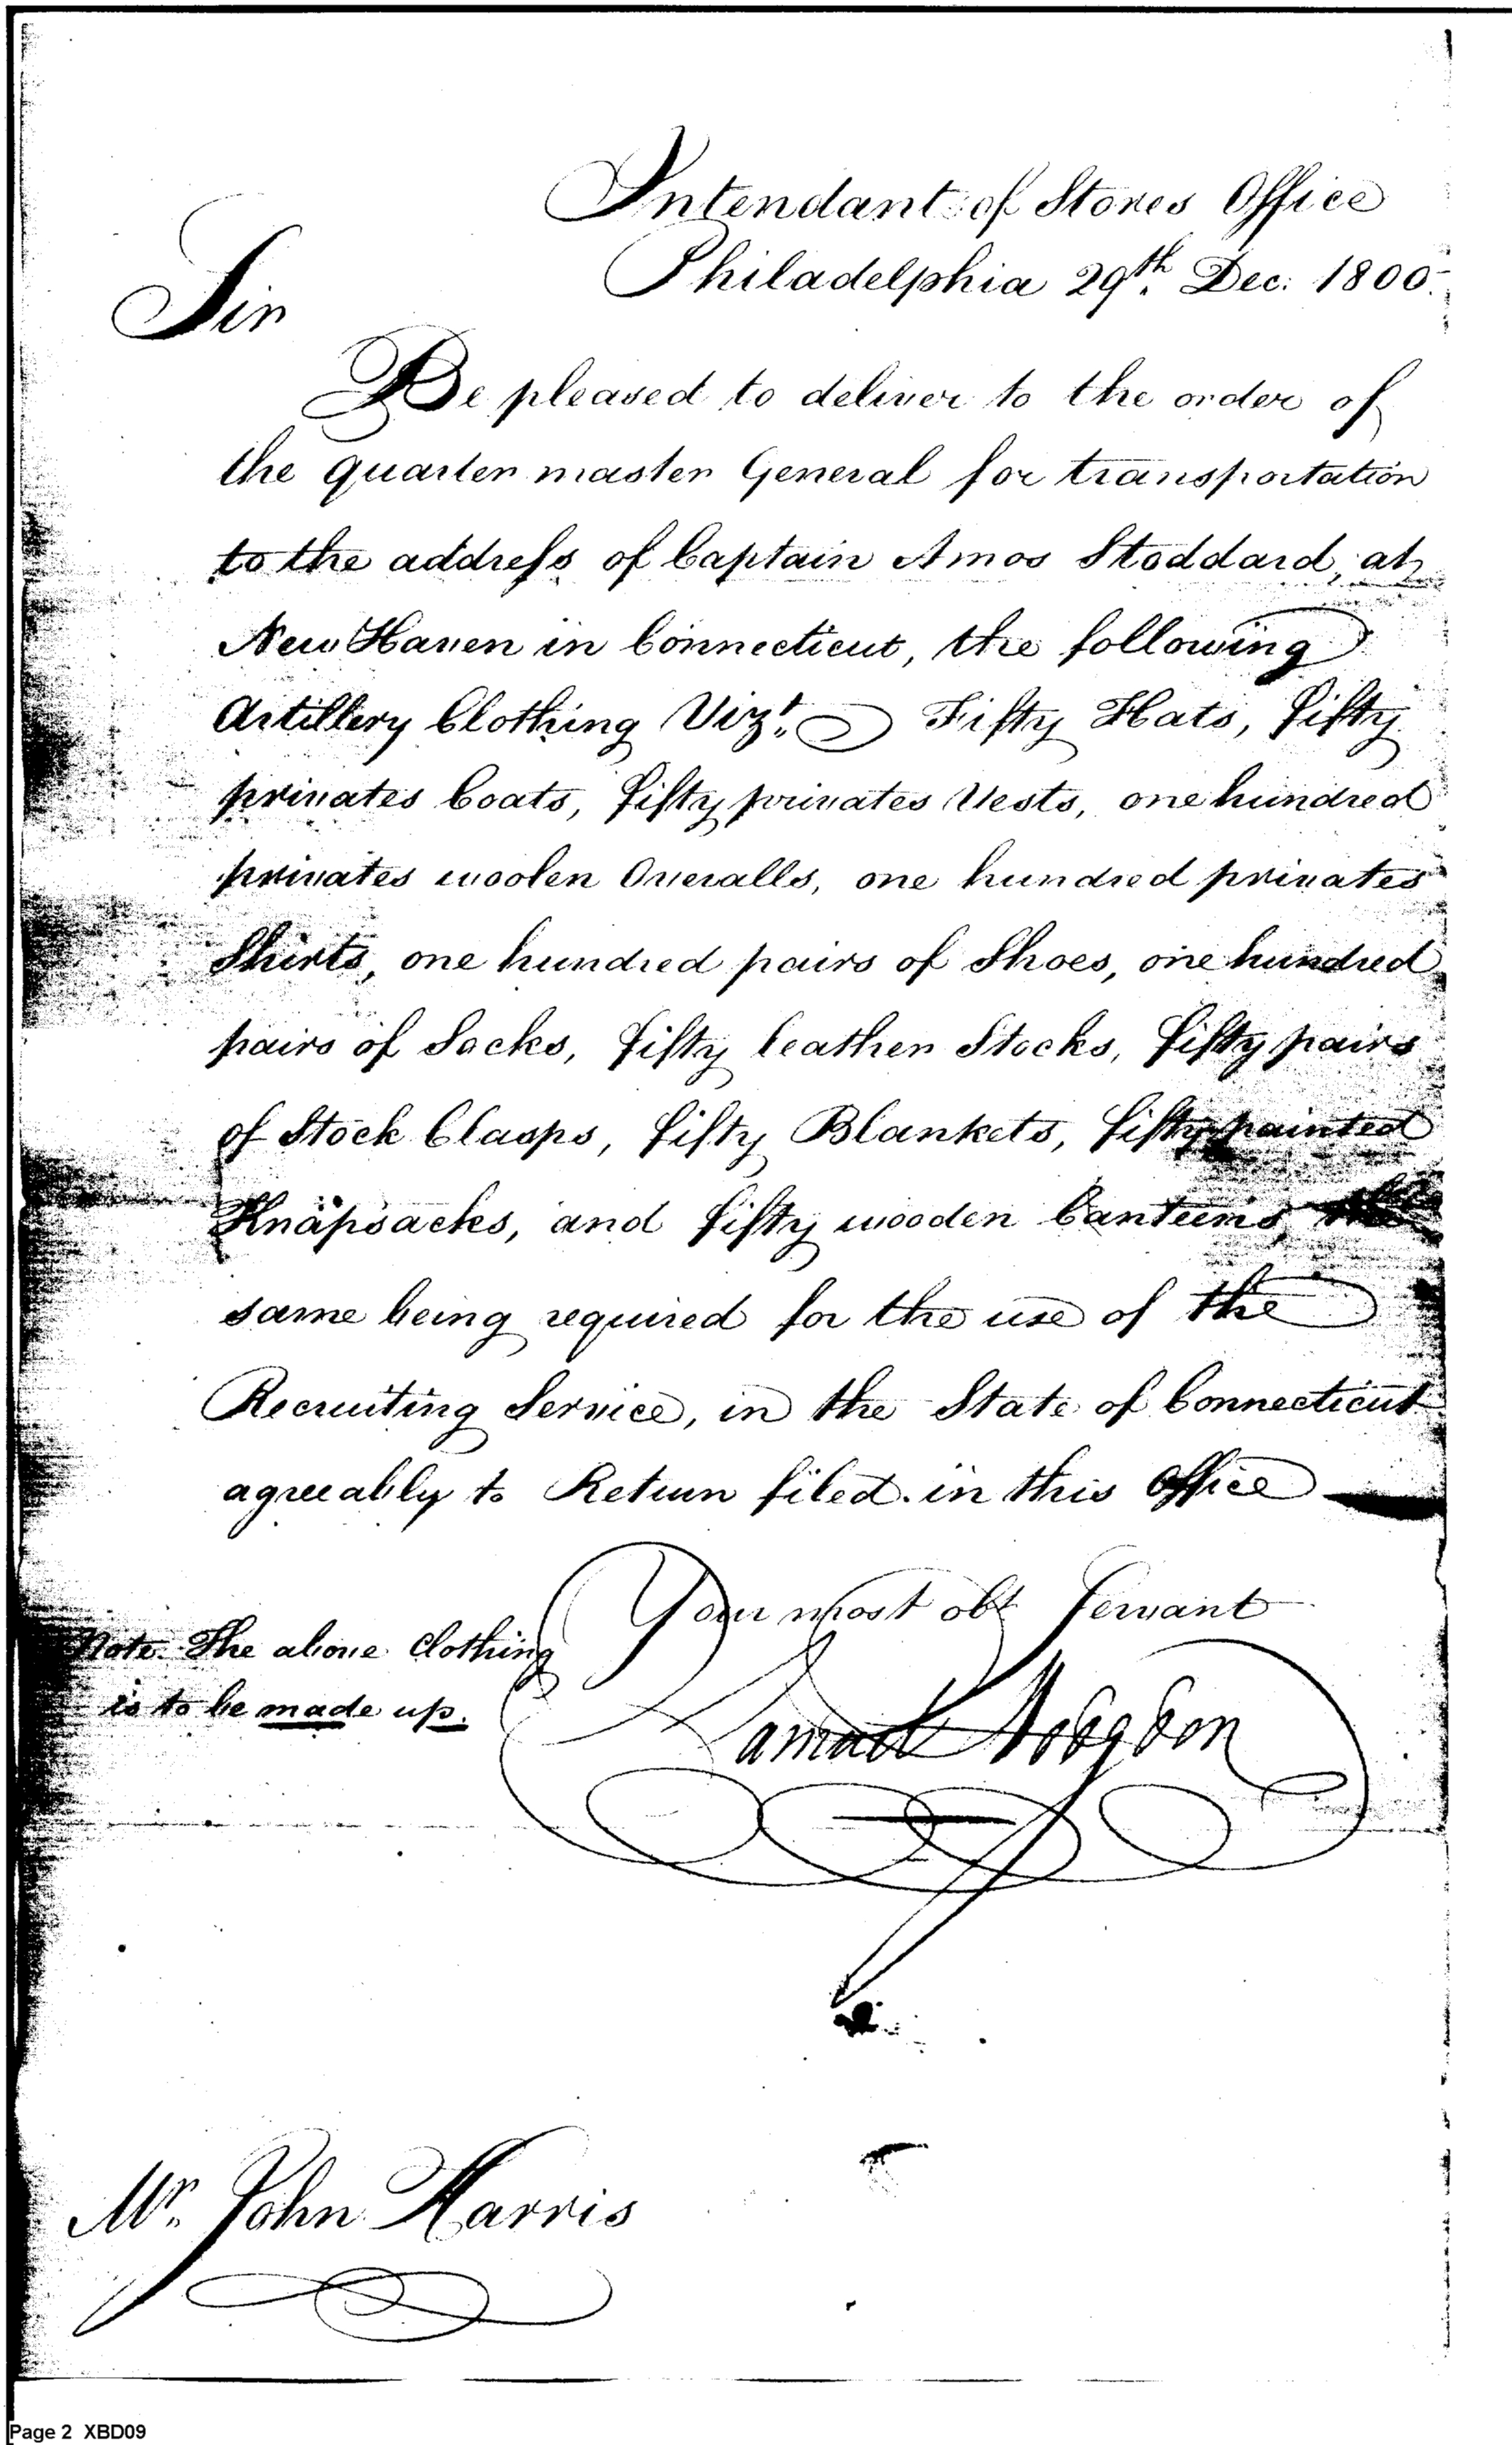 Intendant of Stores Office
Philadelphia 29th. Dec: 1800.
Sir
Be pleased to deliver to the order of
the quarter master General for transportation
to the address of Captain Amos Stoddard, at
New Haven in Connecticut, the following
Artillery Clothing Vizt. Fifty Hats, fifty
privates Coats, fifty privates Vests, one hundred
privates woolen Overalls, one hundred privates
Shirts, one hundred pairs of Shoes, one hundred
pairs of Socks, fifty leather Stocks, fifty pairs
of Stock Clasps, fifty Blankets, fifty painted
Knapsacks, and fifty wooden Canteens
same being required for the use of the
Recruiting Service, in the State of Connecticut
agreeably to Return filed in this Office
Your most obt Servant
Note. The above Clothing
is to be made up.
Samuel Hodgdon
Mr. John Harris
Page 2 XBD09